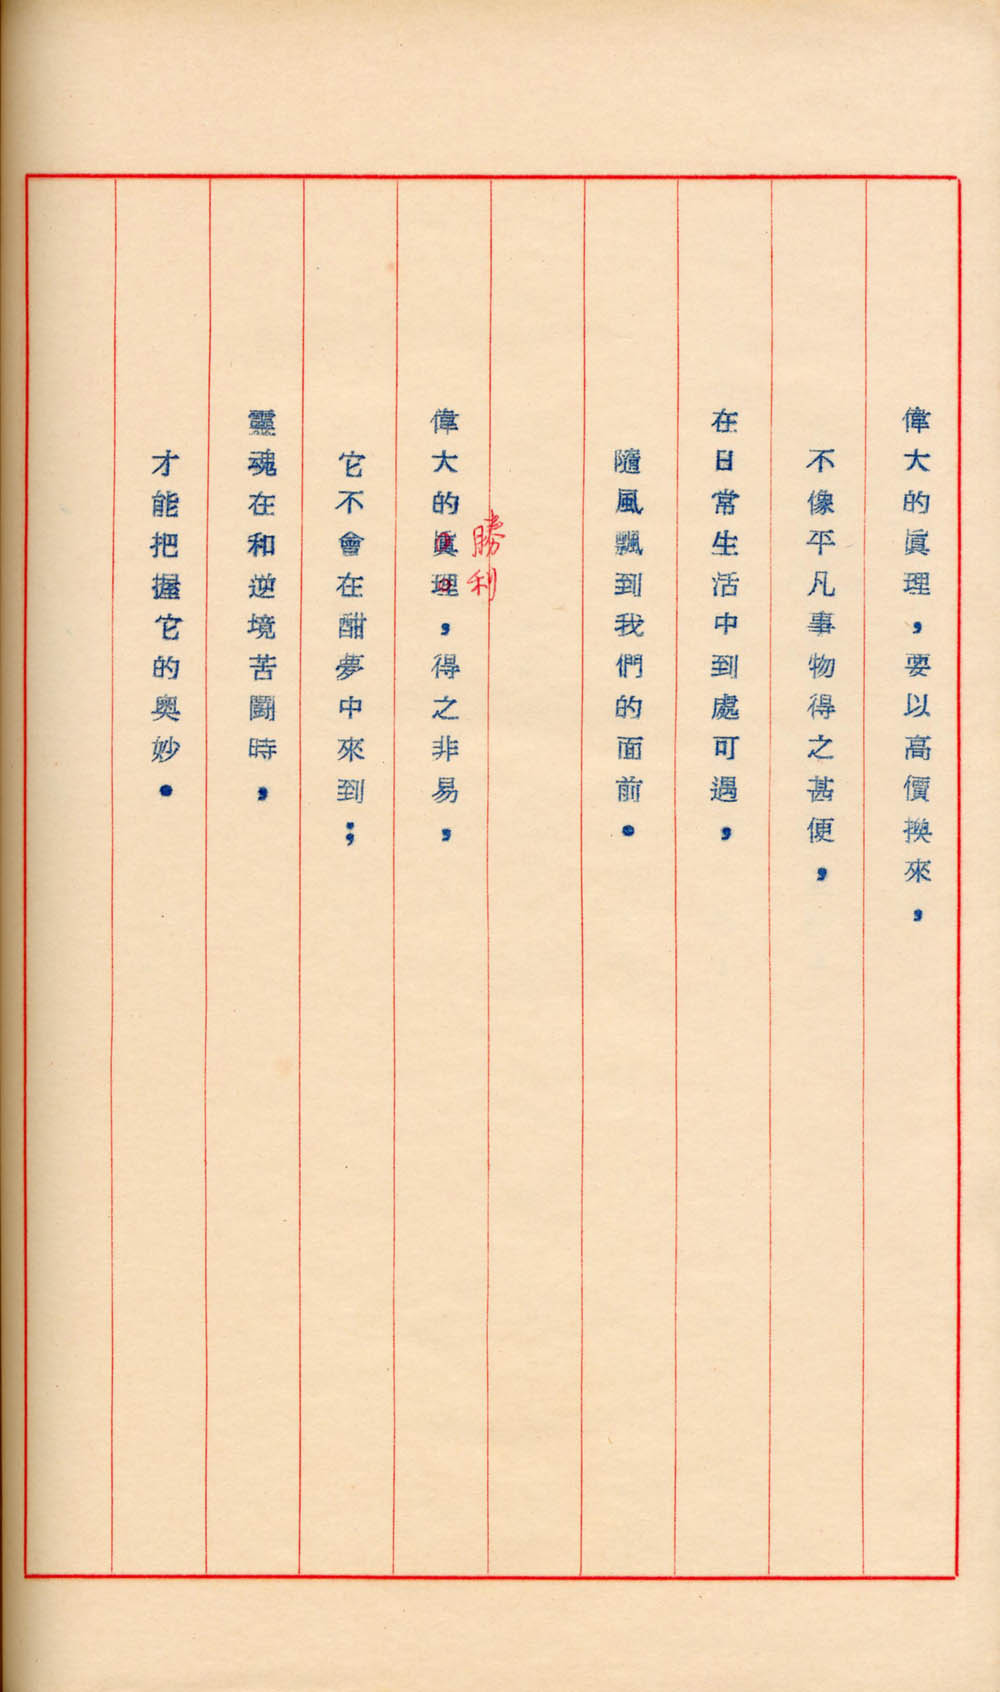 偉大的眞理，要以高價換來，
不像平凡事物得之甚便，
在日常生活中到處可遇，
隨風飄到我們的面前。
勝利
偉大的眞理，得之非易，
它不會在酣夢中來到；
靈魂在和逆境苦鬪時，
才能把握它的奧妙。